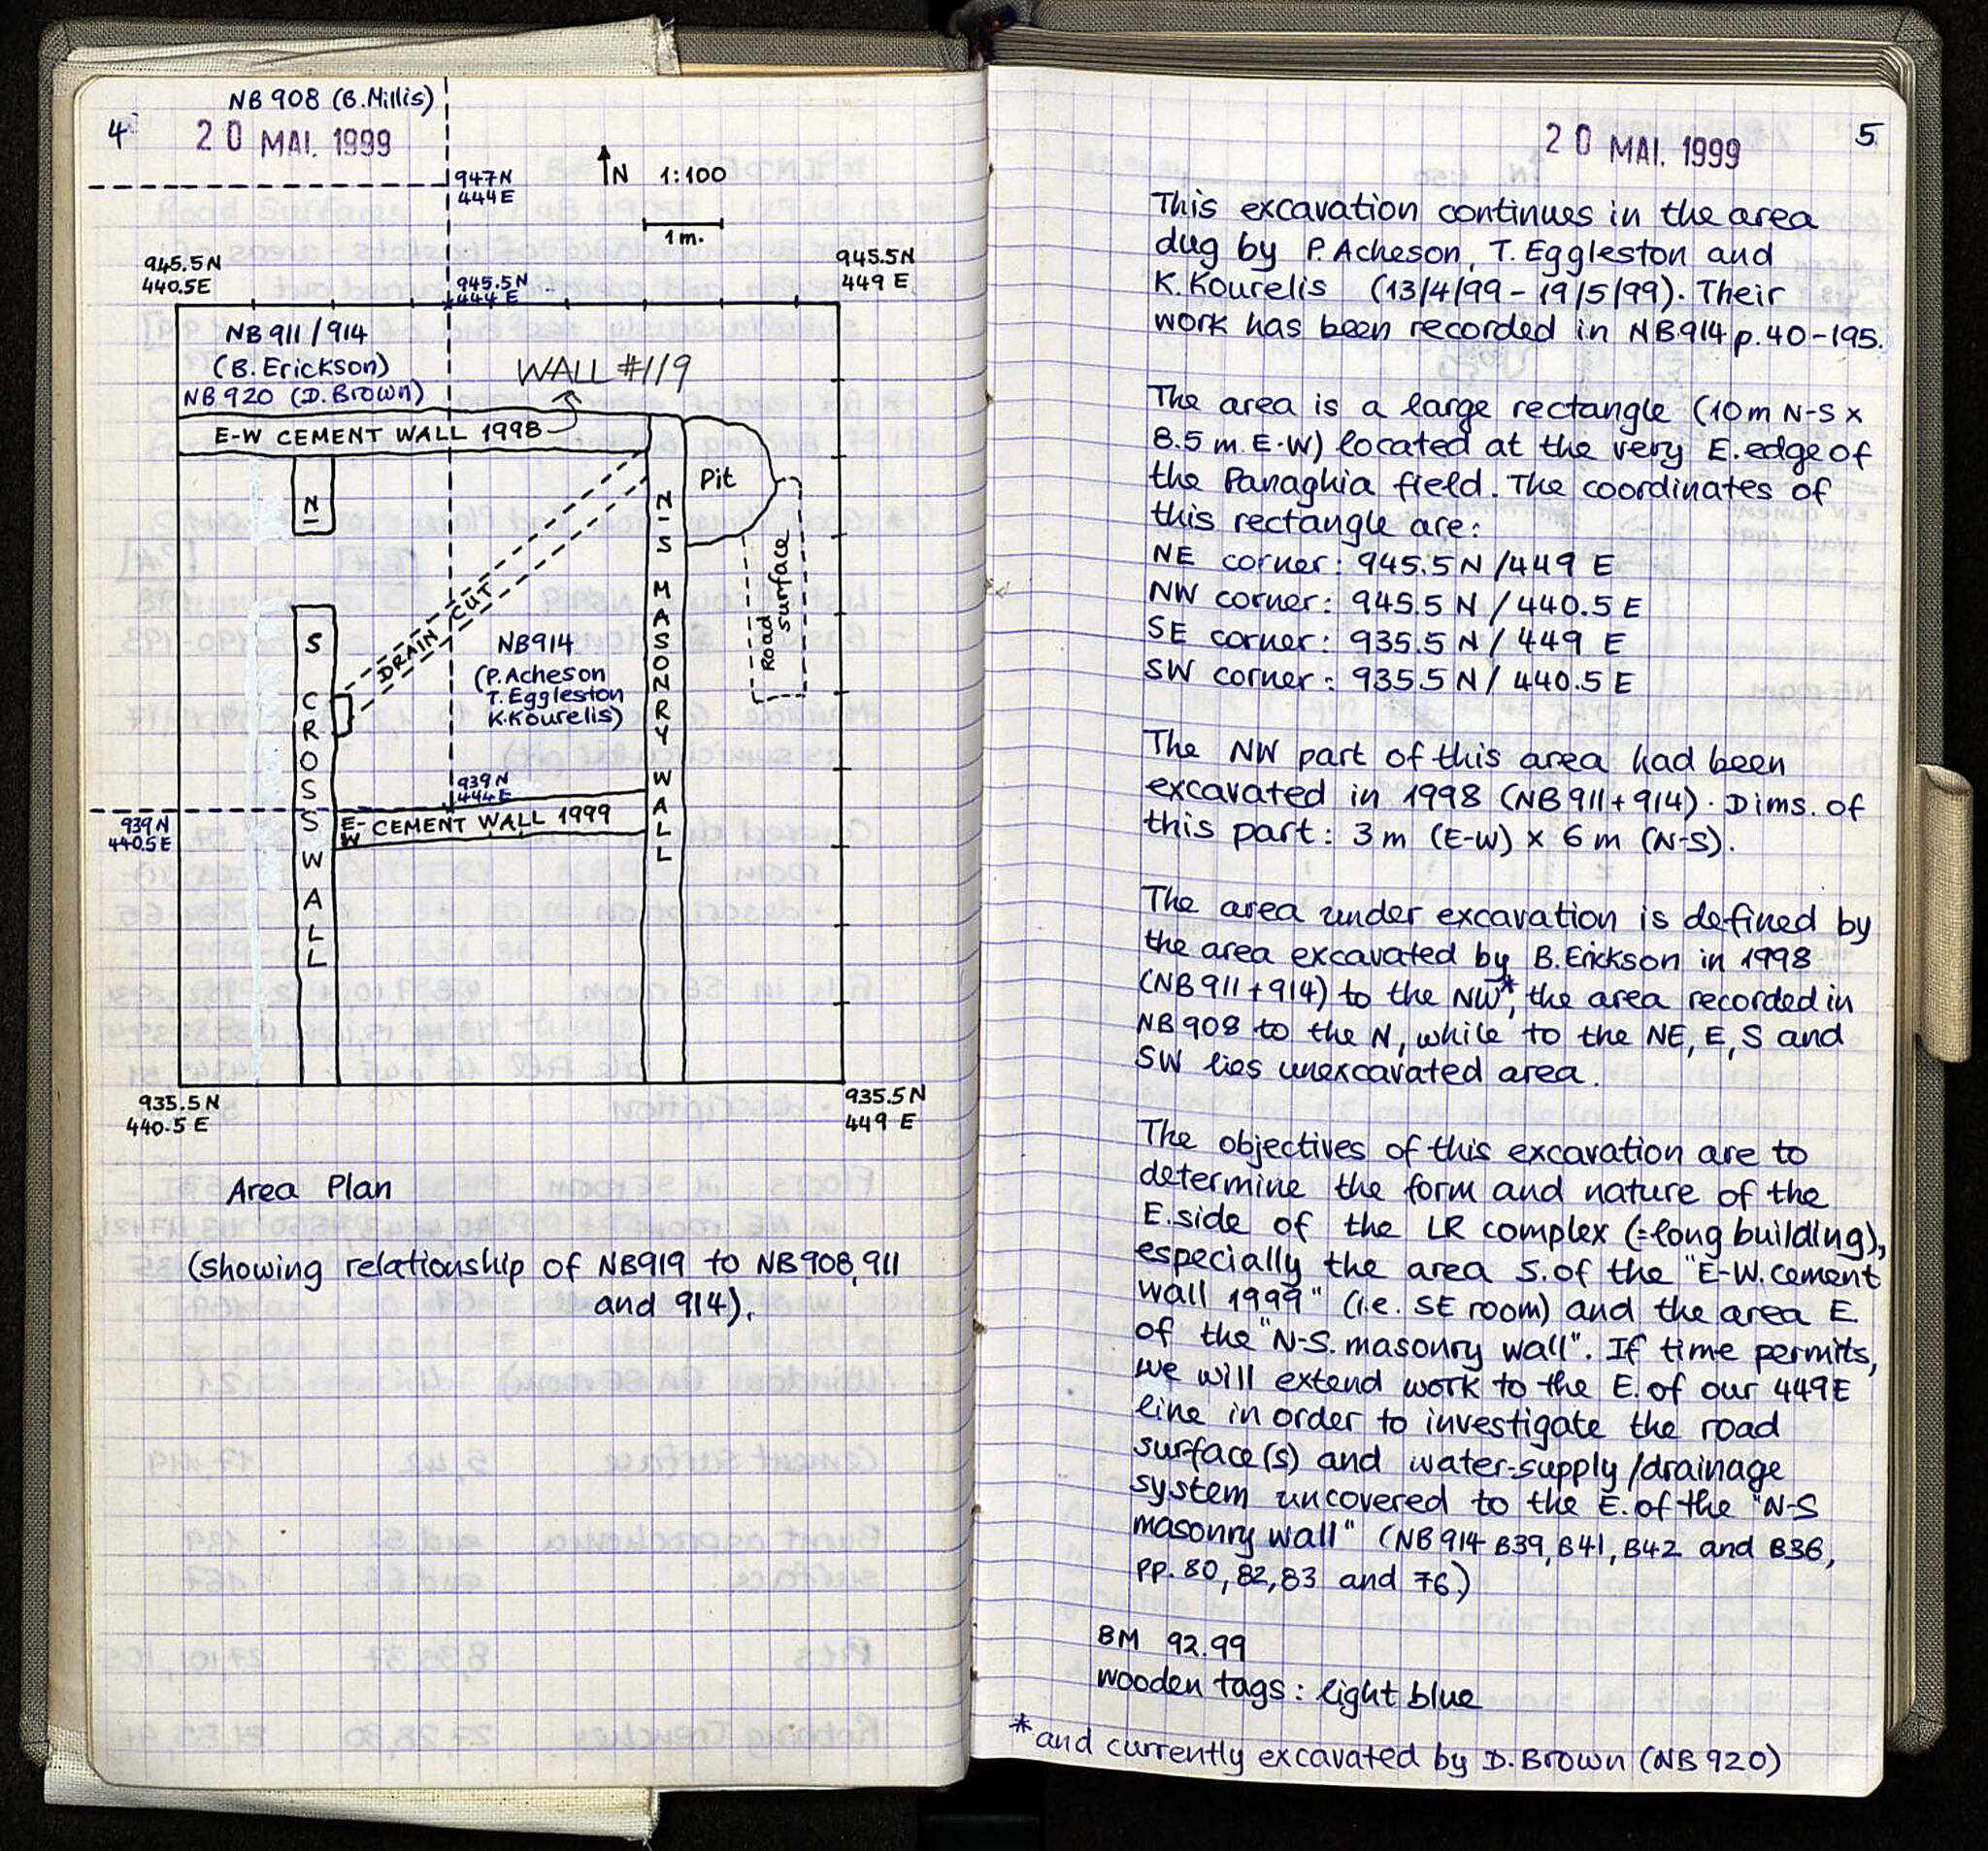 NB 908 (B. Millis)
4
20 MAI. 1999
947 N
444 E
N 1:100
1 m.
945.5 N
440.5 E
945.5 N
444 E
945.5 N
449 E
NB 911/914
(B. Erickson)
NB 920 (D. Brown)
WALL #119
E-W CEMENT WALL 1998
N
Pit
N-S MASONRY WALL
Road surface
S CROSS WALL
DRAIN CUT
NB914
(P. Acheson
T. Eggleston
K. Kourelis)
939 N
444 E
939 N
440.5 E
E-W CEMENT WALL 1999
935.5 N
440.5 E
935.5 N
449 E
Area Plan
(showing relationship of NB919 to NB908, 911
and 914).
20 MAI. 1999
5
This excavation continues in the area
dug by P. Acheson, T. Eggleston and
K. Kourelis (13/4/99 - 19/5/99). Their
work has been recorded in NB914 p. 40-195.
The area is a large rectangle (10 m N-S x
8.5 m. E-W) located at the very E. edge of
the Panaghia field. The coordinates of
this rectangle are:
NE corner: 945.5 N / 449 E
NW corner: 945.5 N / 440.5 E
SE corner: 935.5 N / 449 E
SW corner: 935.5 N / 440.5 E
The NW part of this area had been
excavated in 1998 (NB 911 + 914). Dims. of
this part: 3 m (E-W) x 6 m (N-S).
The area under excavation is defined by
the area excavated by B. Erickson in 1998
(NB 911 + 914) to the NW*, the area recorded in
NB 908 to the N, while to the NE, E, S and
SW lies unexcavated area.
The objectives of this excavation are to
determine the form and nature of the
E. side of the LR complex (= long building),
especially the area S. of the "E-W. cement
wall 1999" (i.e. SE room) and the area E.
of the "N-S. masonry wall". If time permits,
we will extend work to the E. of our 449E
line in order to investigate the road
surface(s) and water-supply/drainage
system uncovered to the E. of the "N-S
masonry wall" (NB 914 B39, B41, B42 and B36,
pp. 80, 82, 83 and 76.)
BM 92.99
wooden tags: light blue
*and currently excavated by D. Brown (NB 920)